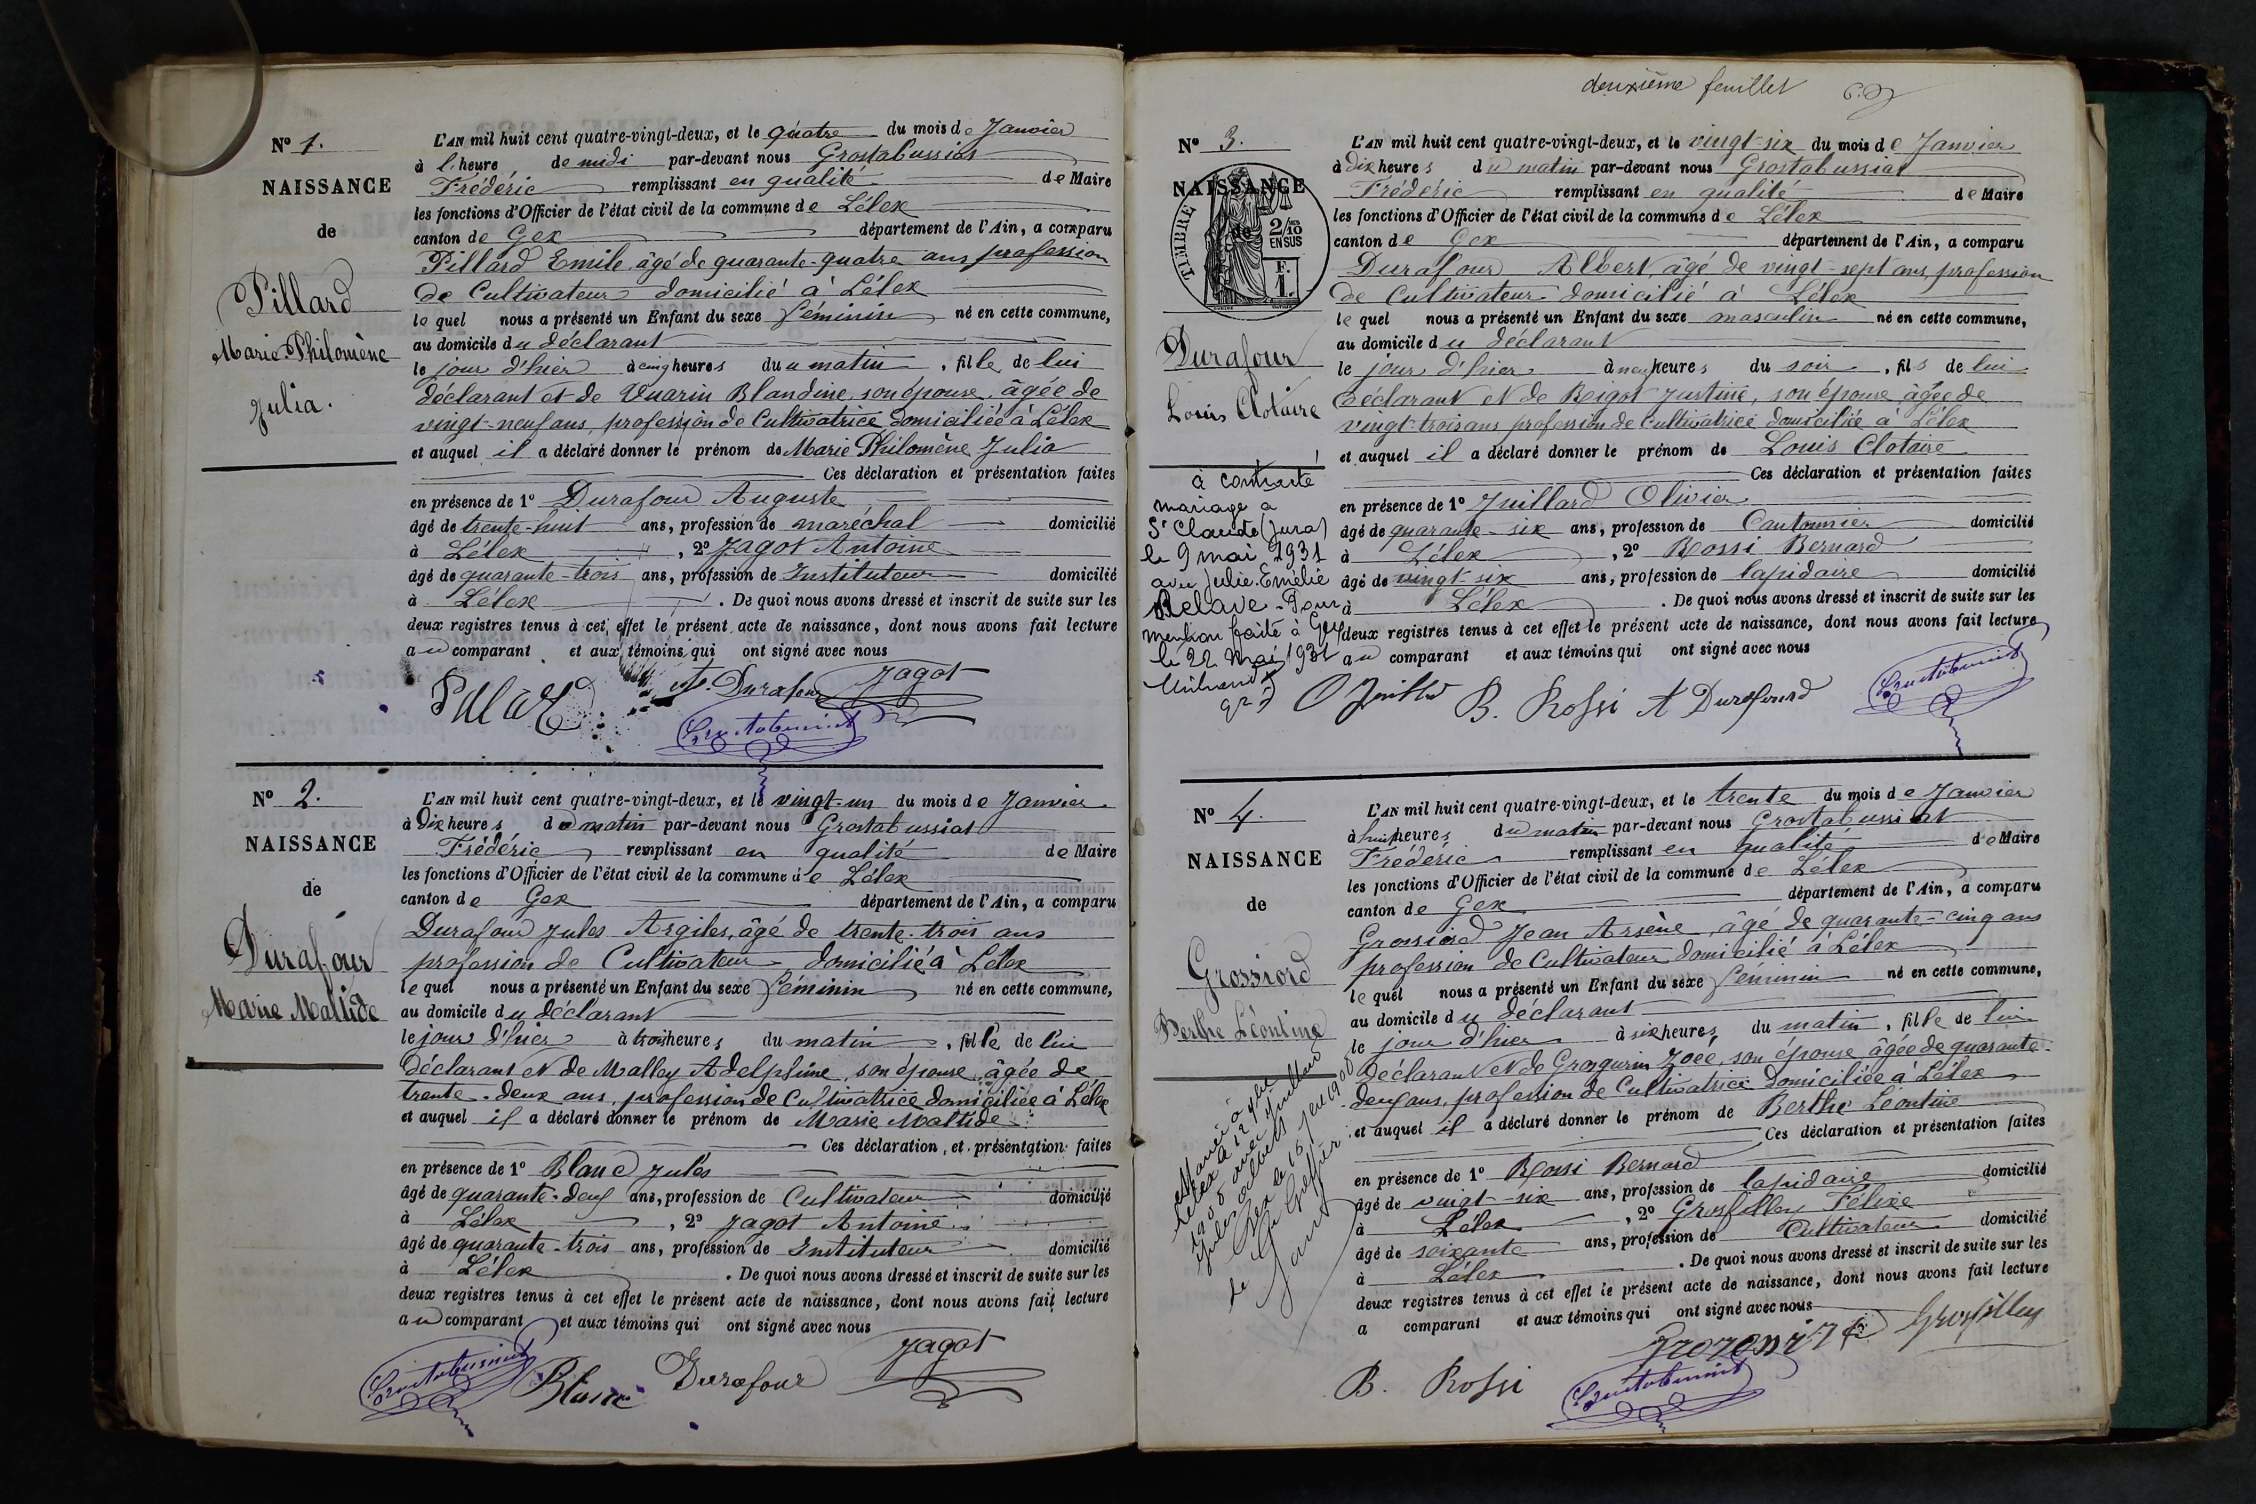 N° 1.
NAISSANCE
de
Pillard
Marie Philomène
Julia.
L'AN mil huit cent quatre-vingt-deux, et le quatre du mois de Janvier
à l'heure de midi par-devant nous Grostabussiat
Frédéric remplissant en qualité de Maire
les fonctions d'Officier de l'état civil de la commune de Lélex
canton de Gex département de l'Ain, a comparu
Pillard Emile, âgé de quarante-quatre ans profession
de Cultivateur domicilié à Lélex
lequel nous a présenté un Enfant du sexe féminin né en cette commune,
au domicile du déclarant
le jour d'hier à cinq heures du matin, fille de lui
déclarant et de Vuarin Blandine, son épouse, âgée de
vingt-neuf ans, profession de Cultivatrice domiciliée à Lélex
et auquel il a déclaré donner le prénom de Marie Philomène Julia
Ces déclaration et présentation faites
en présence de 1° Durafour Auguste
âgé de trente-huit ans, profession de maréchal domicilié
à Lélex, 2° Jagot Antoine
âgé de quarante-trois ans, profession de Instituteur domicilié
à Lélex. De quoi nous avons dressé et inscrit de suite sur les
deux registres tenus à cet effet le présent acte de naissance, dont nous avons fait lecture
au comparant et aux témoins qui ont signé avec nous
A. Durafour Jagot
Grostabussiat
N° 2.
NAISSANCE
de
Durafour
Marie Maltide
L'AN mil huit cent quatre-vingt-deux, et le vingt-un du mois de Janvier
à dix heures du matin par-devant nous Grostabussiat
Frédéric remplissant en qualité de Maire
les fonctions d'Officier de l'état civil de la commune de Lélex
canton de Gex département de l'Ain, a comparu
Durafour Jules Argiles, âgé de trente-trois ans
profession de Cultivateur domicilié à Lélex
lequel nous a présenté un Enfant du sexe féminin né en cette commune,
au domicile du déclarant
le jour d'hier à trois heures du matin, fille de lui
déclarant et de Malley Adelphine, son épouse, âgée de
trente-deux ans, profession de Cultivatrice domiciliée à Lélex
et auquel il a déclaré donner le prénom de Marie Maltide
Ces déclaration et présentation faites
en présence de 1° Blanc Jules
âgé de quarante-deux ans, profession de Cultivateur domicilié
à Lélex, 2° Jagot Antoine
âgé de quarante-trois ans, profession de Instituteur domicilié
à Lélex. De quoi nous avons dressé et inscrit de suite sur les
deux registres tenus à cet effet le présent acte de naissance, dont nous avons fait lecture
au comparant et aux témoins qui ont signé avec nous
Grostabussiat Blanc Durafour Jagot
deuxième feuillet
N° 3.
NAISSANCE
de
TIMBRE
2/10
EN SUS
F.
1.
Durafour
Louis Clotaire
à contracté
mariage a
St Claude (Jura)
le 9 mai 1931
avec Julie Emélie
Relave. Pour
mention faite à Gex
le 22 Mai 1931
L'AN mil huit cent quatre-vingt-deux, et le vingt-six du mois de Janvier
à dix heures du matin par-devant nous Grostabussiat
Frédéric remplissant en qualité de Maire
les fonctions d'Officier de l'état civil de la commune de Lélex
canton de Gex département de l'Ain, a comparu
Durafour Albert, âgé de vingt-sept ans, profession
de Cultivateur domicilié à Lélex
lequel nous a présenté un Enfant du sexe masculin né en cette commune,
au domicile du déclarant
le jour d'hier à neuf heures du soir, fils de lui
déclarant et de Beigot Justine, son épouse, âgée de
vingt-trois ans profession de Cultivatrice domiciliée à Lélex
et auquel il a déclaré donner le prénom de Louis Clotaire
Ces déclaration et présentation faites
en présence de 1° Juillard Olivier
âgé de quarante-six ans, profession de Cantonnier domicilié
à Lélex, 2° Rossi Bernard
âgé de vingt-six ans, profession de lapidaire domicilié
à Lélex. De quoi nous avons dressé et inscrit de suite sur les
deux registres tenus à cet effet le présent acte de naissance, dont nous avons fait lecture
au comparant et aux témoins qui ont signé avec nous
O Juillard B. Rossi A Durafourd Grostabussiat
N° 4.
NAISSANCE
de
Grossiord
Berthe Léontine
Mariée à
Lélex le 12
1900 avec Juillard
Jules Albert
Gex le 15 Jer 1900
Le Greffier
L'AN mil huit cent quatre-vingt-deux, et le trente du mois de Janvier
à huit heures du matin par-devant nous Grostabussiat
Frédéric remplissant en qualité de Maire
les fonctions d'Officier de l'état civil de la commune de Lélex
canton de Gex département de l'Ain, a comparu
Grossiord Jean Arsène, âgé de quarante-cinq ans
profession de Cultivateur domicilié à Lélex
lequel nous a présenté un Enfant du sexe féminin né en cette commune,
au domicile du déclarant
le jour d'hier à six heures du matin, fille de lui
déclarant et de Grosgurin Zoée, son épouse âgée de quarante-
deux ans, profession de Cultivatrice domiciliée à Lélex
et auquel il a déclaré donner le prénom de Berthe Léontine
Ces déclaration et présentation faites
en présence de 1° Rossi Bernard
âgé de vingt-six ans, profession de lapidaire domicilié
à Lélex, 2° Grosfilley Félixe
âgé de soixante ans, profession de Cultivateur domicilié
à Lélex. De quoi nous avons dressé et inscrit de suite sur les
deux registres tenus à cet effet le présent acte de naissance, dont nous avons fait lecture
a comparant et aux témoins qui ont signé avec nous
Grosfilley
B. Rossi Grostabussiat